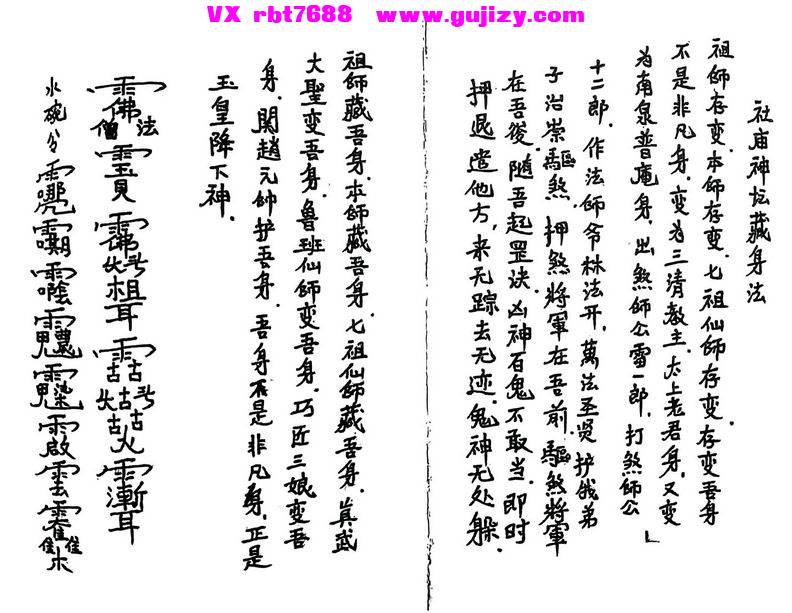 VX rbt7688 www.gujizy.com
社庙神坛藏身法
祖师存变.本师存变.七祖仙师存变.存变吾身
不是非凡身.变为三清教主.太上老君身.又变
为南泉普庵身.出煞师公雷一郎.打煞师公
十二郎.作法师爷林法开.萬法圣贤护我弟
子治崇.驅煞.押煞將軍在吾前.驅煞將軍
在吾後.随吾起罡诀.凶神百鬼不敢当.即时
押退遣他方.来无踪去无迹.鬼神无处躲.
祖師藏吾身.本師藏吾身.七祖仙師藏吾身.真武
大聖变吾身.鲁班仙師变吾身.巧匠三娘变吾
身.関趙元帅护吾身.吾身不是非凡身.正是
玉皇降下神.
水碗分